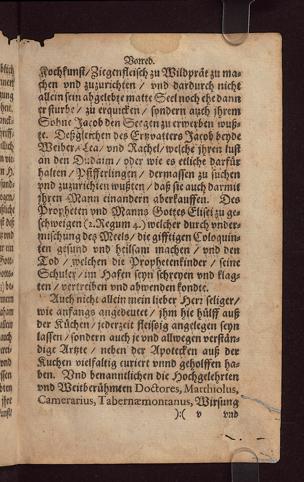 Vorred.
Kochkunst / Ziegenfleisch zu Wildprät zu ma-
chen vnd zuzurichten / vnd dardurch nicht
allein sein abgelebte matte Seel noch ehe dann
er sturbe / zu erquicken / sondern auch jhrem
Sohne Jacob den Seegen zu erwerben wuß-
te. Deßgleichen des Ertzvatters Jacob beyde
Weiber / Lea / vnd Rachel / welche jhren lust
an den Dudaim / oder wie es etliche darfür
halten / Pfifferlingen / dermassen zu suchen
vnd zuzurichten wußten / daß sie auch darmit
jhren Mann einandern aberkaufften. Des
Propheten vnd Manns Gottes Elisei zu ge-
schweigen (2. Regum 4.) welcher durch vnder-
mischung des Meels / die gifftigen Coloquin-
ten gesund vnd heilsam machen / vnd den
Tod / welchen die Prophetenkinder / seine
Schuler / im Hafen seyn schreyen vnd klag-
ten / vertreiben vnd abwenden kondte.
Auch nicht allein mein lieber Herr seliger /
wie anfangs angedeutet / jhm hie hülff auß
der Küchen / jederzeit fleissig angelegen seyn
lassen / sondern auch je vnd allwegen verstän-
dige Artzte / neben der Apotecken auß der
Kuchen vielfaltig curiert vnnd geholffen ha-
ben. Vnd benanntlichen die Hochgelehrten
vnd Weitberühmten Doctores, Matthiolus,
Camerarius, Tabernæmontanus, Wirsung
):( v vnd